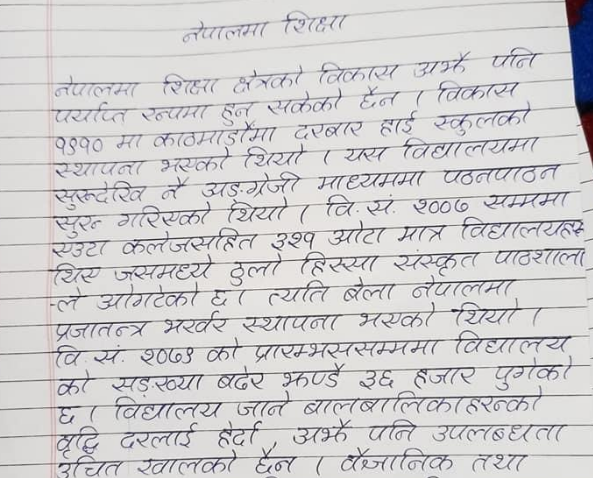 नेपालमा शिक्षा
नेपालमा शिक्षा क्षेत्रको विकास अझै पनि
पर्याप्त रुपमा हुन सकेको छैन । विकास
१९१० मा काठमाडौंमा दरबार हाई स्कुलको
स्थापना भएको थियो । यस विद्यालयमा
सुरुदेखि नै अङग्रेजी माध्यममा पठनपाठन
सुरु गरिएको थियो । वि.सं. २००७ सम्ममा
एउटा कलेजसहित ३२१ ओटा मात्र विद्यालयहरू
थिए जसमध्ये ठुलो हिस्सा संस्कृत पाठशाला
-ले ओगटेको छ। त्यति बेला नेपालमा
प्रजातन्त्र भर्खर स्थापना भएको थियो ।
वि.सं. २०७३ को प्रारम्भससम्ममा विद्यालय
को सङख्या बढेर झण्डै ३६ हजार पुगेको
छ । विद्यालय जाने बालबालिकाहरुको
वृद्धि दरलाई हेर्दा , अझै पनि उपलब्धता
उचित खालको छैन । वैज्ञानिक तथा